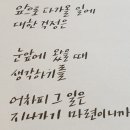 앞으로 다가올 일에
대한 걱정은
눈앞에 왔을 때
생각하기를
어차피 그 일은
지나가기 마련이니까